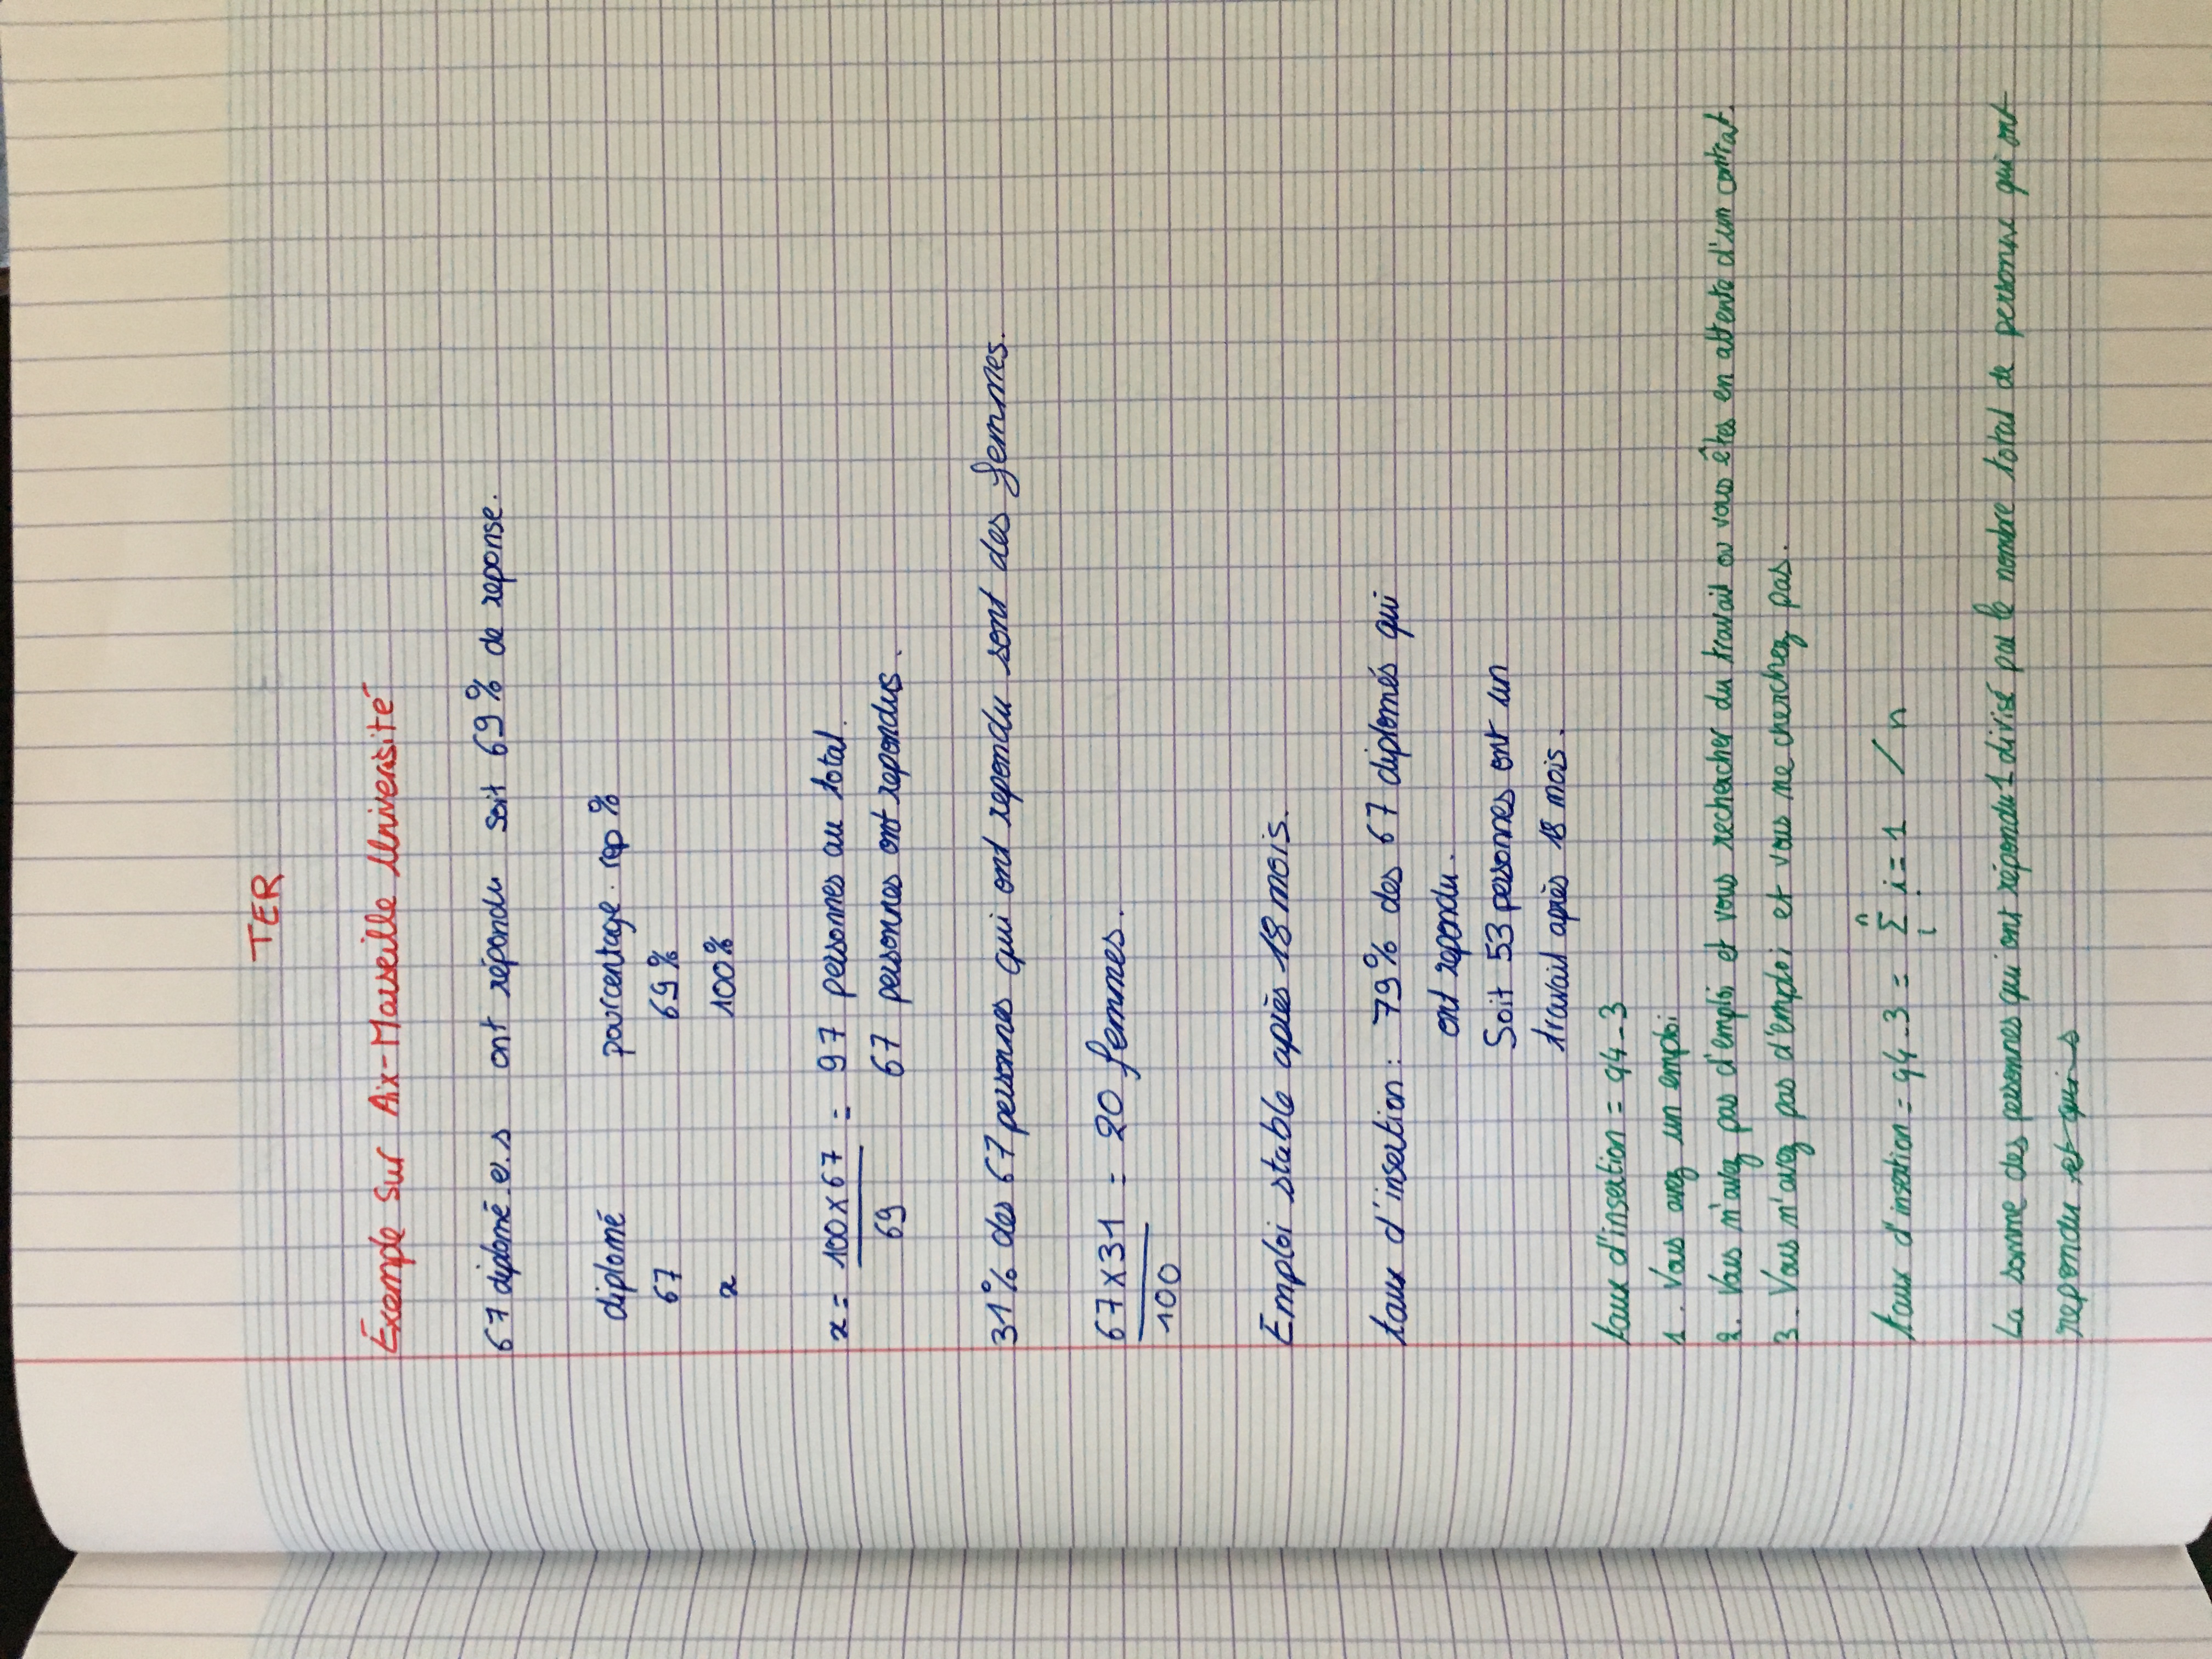 TER
Exemple sur Aix-Marseille Université
67 diplômé.e.s ont répondu soit 69% de reponse.
diplomé pourcentage rep %
67 69%
x 100%
x = 100 x 67 = 97 personnes au total.
69 67 personnes ont repondus.
31% des 67 personnes qui ont repondu sont des femmes.
67 x 31 = 20 femmes.
100
Emploi stable après 18 mois.
taux d'insertion : 79% des 67 diplomés qui
ont repondu.
Soit 53 personnes ont un
travail après 18 mois.
taux d'insertion = q4-3
1. Vous avez un emploi
2. Vous n'avez pas d'emploi et vous rechercher du travail ou vous êtes en attente d'un contrat.
3. Vous n'avez pas d'emploi et vous ne cherchez pas.
taux d'insertion = q4-3 = n Σ i i=1 / n
La somme des personnes qui ont répondu 1 divisé par le nombre total de personne qui ont
repondu